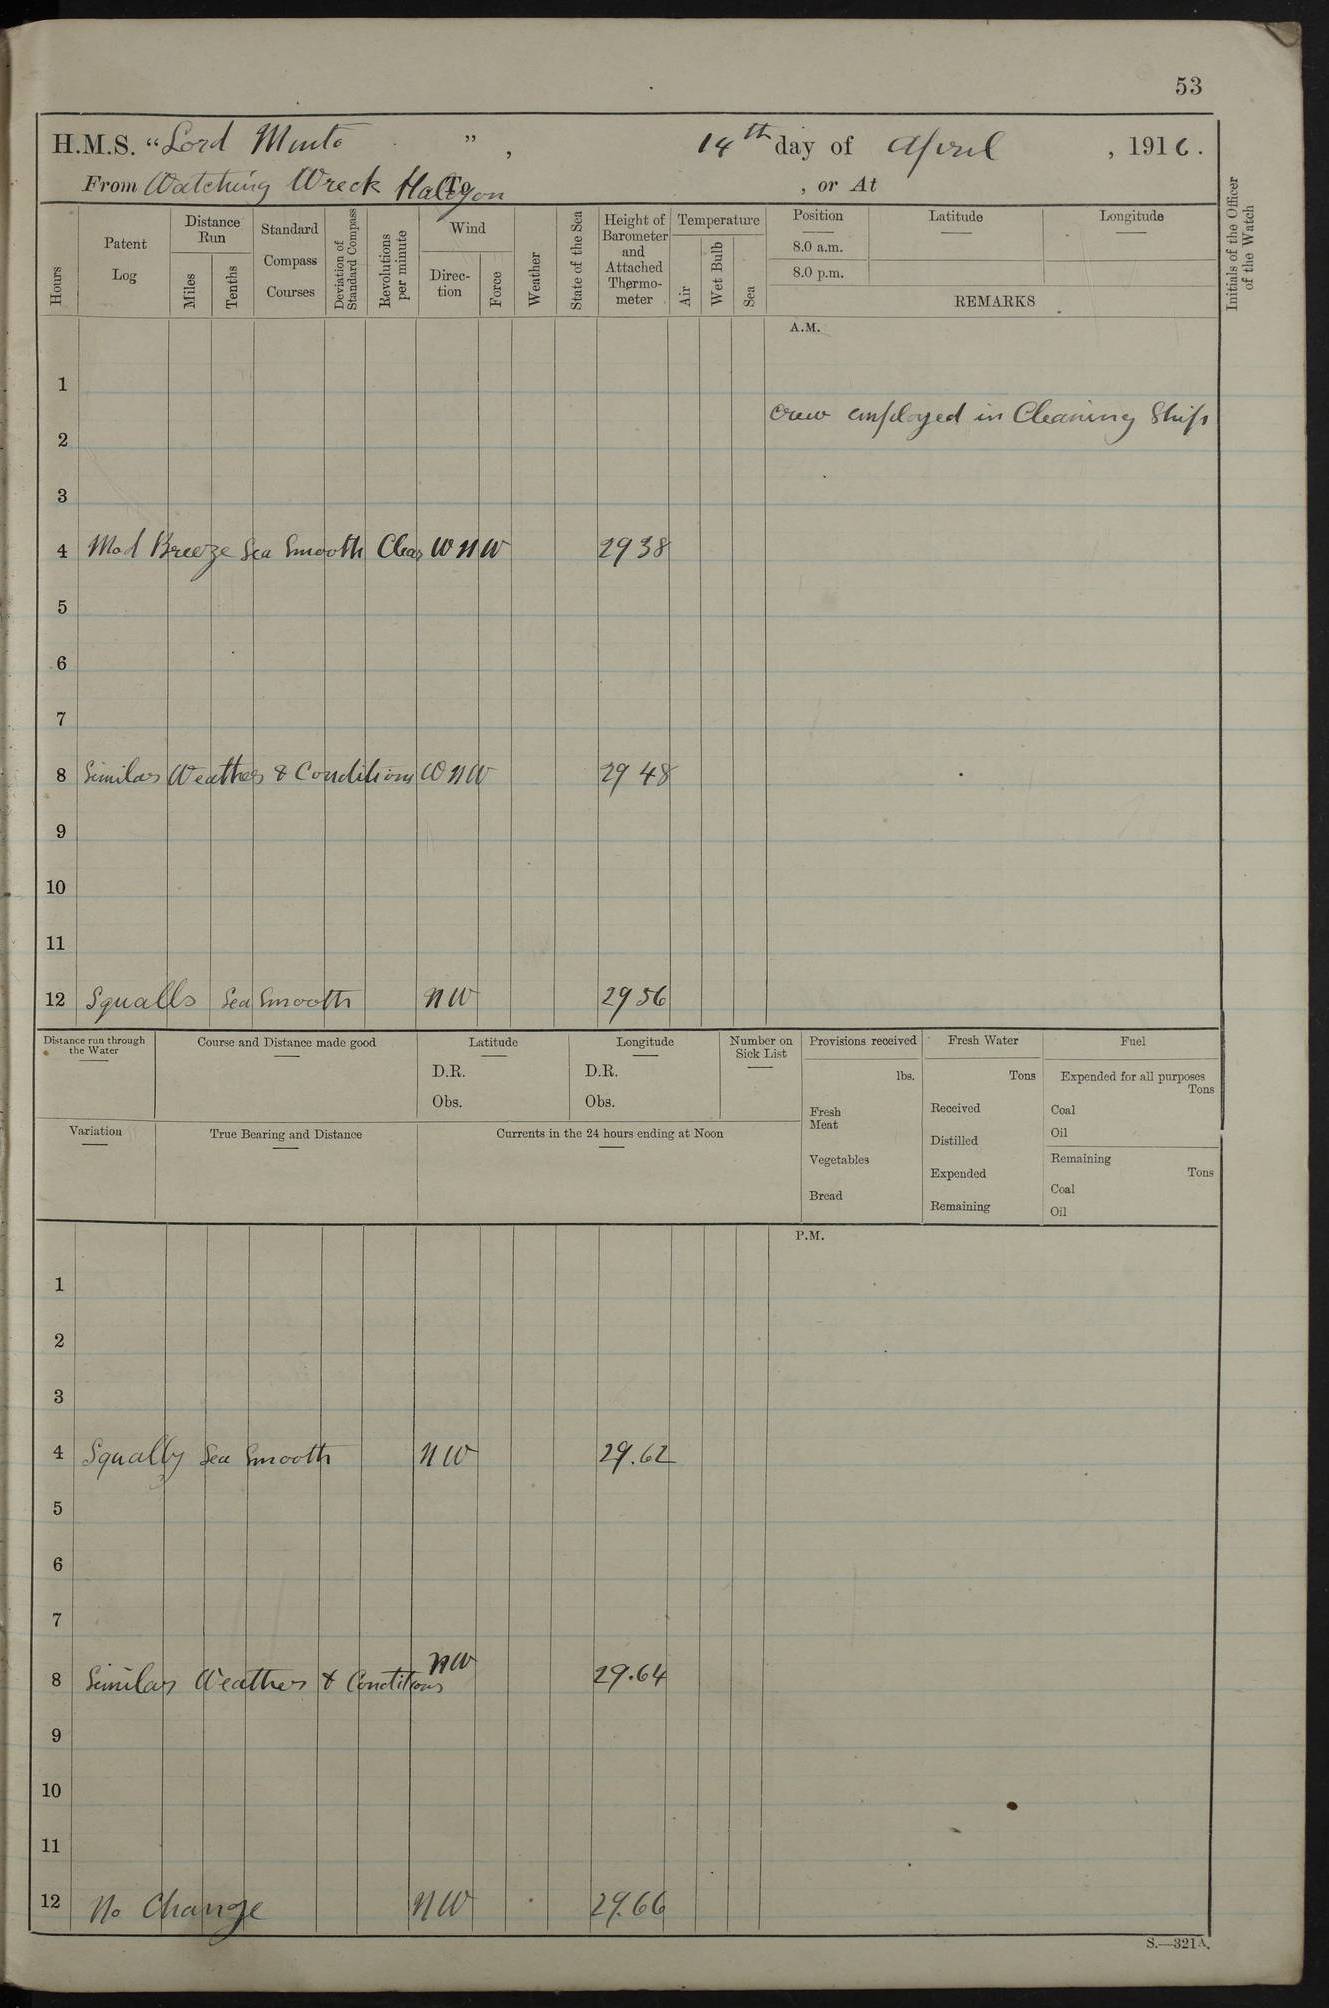 53
H.M.S. "Lord Minto ", 14th day of April, 1916.
From Watching Wreck Halcyon To , or At
Hours
Patent Log
Distance Run
Miles
Tenths
Standard Compass Courses
Deviation of Standard Compass
Revolutions per minute
Wind
Direction
Force
Weather
State of the Sea
Height of Barometer and Attached Thermometer
Temperature
Air
Wet Bulb
Sea
Position Latitude Longitude
8.0 a.m.
8.0 p.m.
REMARKS
Initials of the Officer of the Watch
A.M.
1
Crew employed in Cleaning Ship
2
3
4 Mod Breeze Sea Smooth Clear WNW 29 38
5
6
7
8 Similar Weather & Conditions WNW 29 48
9
10
11
12 Squalls Sea Smooth NW 29 56
Distance run through the Water
Course and Distance made good
Latitude
D.R.
Obs.
Longitude
D.R.
Obs.
Number on Sick List
Variation
True Bearing and Distance
Currents in the 24 hours ending at Noon
Provisions received
lbs.
Fresh Meat
Vegetables
Bread
Fresh Water
Tons
Received
Distilled
Expended
Remaining
Fuel
Expended for all purposes
Tons
Coal
Oil
Remaining
Tons
Coal
Oil
P.M.
1
2
3
4 Squally Sea Smooth NW 29.62
5
6
7
8 Similar Weather & Conditions NW 29.64
9
10
11
12 No Change NW 29.66
S.—321A.